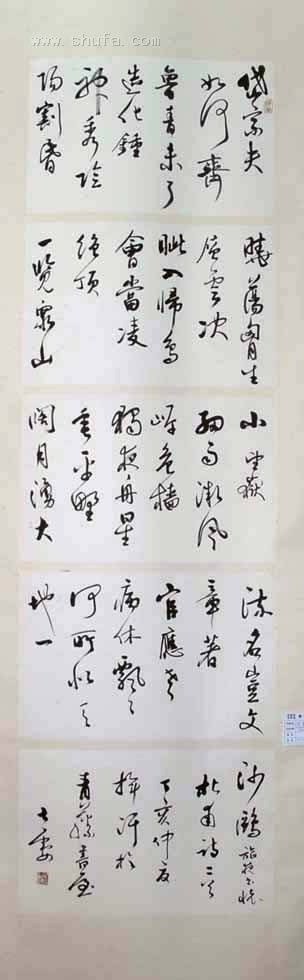 www.shufa.com
岱宗夫
如何齊
魯青未了
造化鍾
神秀陰
陽割昏
曉蕩胸生
層雲決
眦入歸鳥
會當凌
絕頂
一覽衆山
小 望嶽
細 微風
岸危檣
獨夜舟星
垂平野
闊月湧大
流名豈文
章著
官應老
病休飄々
何所似天
地一
沙鷗 旅夜書懷
杜甫詩二首
丁亥仲夏
揮汗於
青藤書屋